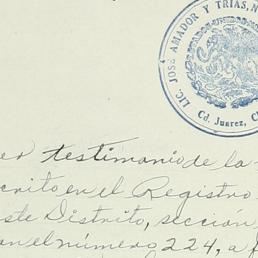 LIC. JOSE AMADOR Y TRIAS, N
Cd. Juarez, C
er testimonio de la
crito en el Registro
ste Distrito, sección
n el número 224, a f